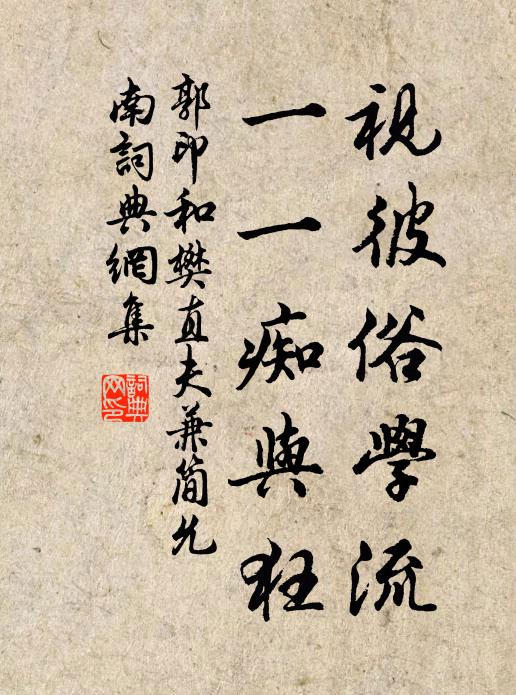 視彼俗學流
一一痴與狂
郭印和樊直夫兼简允
南詞典網集
詞典
网印